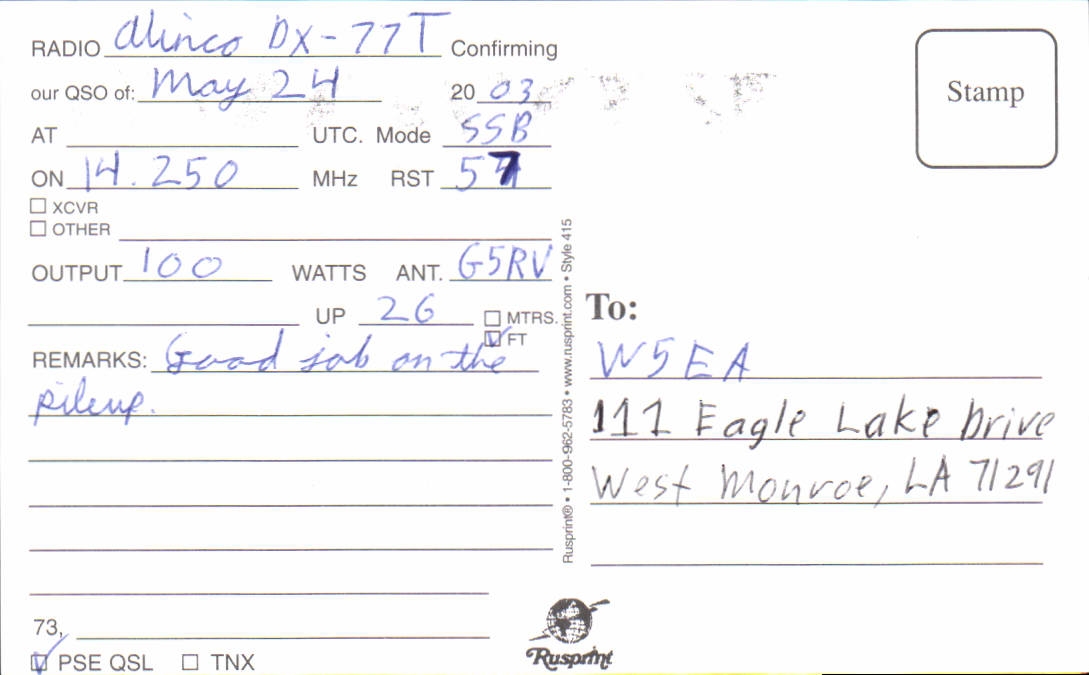 RADIO Alinco DX-77T Confirming
our QSO of: May 24 2003
AT UTC. Mode SSB
ON 14.250 MHz RST 57
XCVR
OTHER
OUTPUT 100 WATTS ANT. G5RV
UP 26 MTRS.
FT
REMARKS: Good job on the
pileup.
73,
PSE QSL TNX
Rusprint® • 1-800-962-5783 • www.rusprint.com • Style 415
Stamp
To:
W5EA
111 Eagle Lake Drive
West Monroe, LA 71291
Rusprint